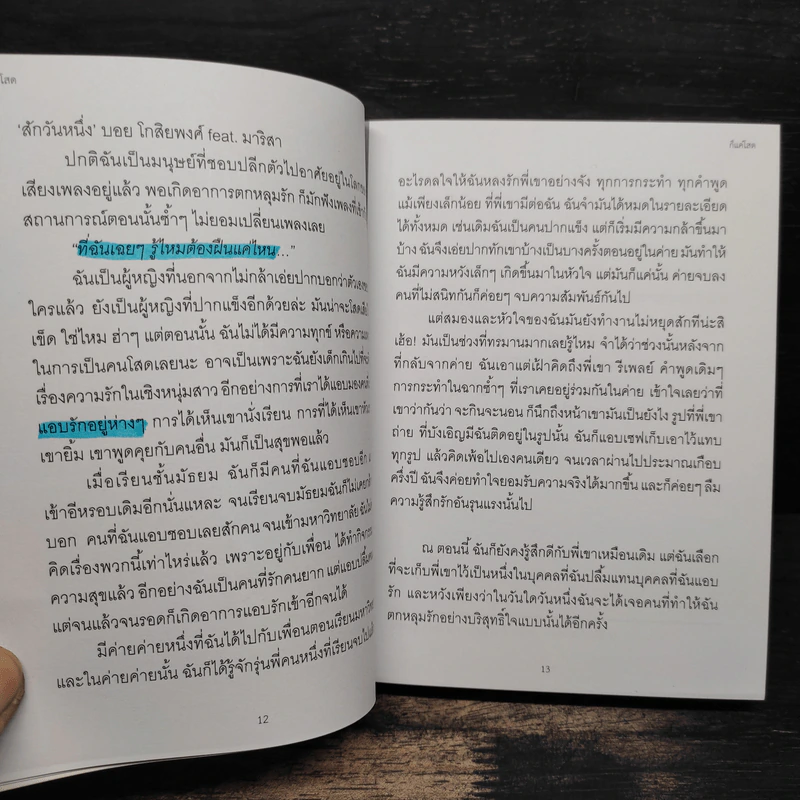 โสด
'สักวันหนึ่ง' บอย โกสิยพงศ์ feat. มาริสา
ปกติฉันเป็นมนุษย์ที่ชอบปลีกตัวไปอาศัยอยู่ในโลก
เสียงเพลงอยู่แล้ว พอเกิดอาการตกหลุมรัก ก็มักฟังเพลงที่เข้า
สถานการณ์ตอนนั้นซ้ำๆ ไม่ยอมเปลี่ยนเพลงเลย
"ที่ฉันเฉยๆ รู้ไหมต้องฝืนแค่ไหน..."
ฉันเป็นผู้หญิงที่นอกจากไม่กล้าเอ่ยปากบอกว่าตัวเอง
ใครแล้ว ยังเป็นผู้หญิงที่ปากแข็งอีกด้วยล่ะ มันน่าจะโสด
เข็ด ใช่ไหม ฮ่าๆ แต่ตอนนั้น ฉันไม่ได้มีความทุกข์ หรือความ
ในการเป็นคนโสดเลยนะ อาจเป็นเพราะฉันยังเด็กเกินไป
เรื่องความรักในเชิงหนุ่มสาว อีกอย่างการที่เราได้แอบมอง
แอบรักอยู่ห่างๆ การได้เห็นเขานั่งเรียน การที่ได้เห็นเขา
เขายิ้ม เขาพูดคุยกับคนอื่น มันก็เป็นสุขพอแล้ว
เมื่อเรียนชั้นมัธยม ฉันก็มีคนที่ฉันแอบชอบอีก
เข้าอีหรอบเดิมอีกนั่นแหละ จนเรียนจบมัธยมฉันก็ไม่เคย
บอก คนที่ฉันแอบชอบเลยสักคน จนเข้ามหาวิทยาลัย ฉัน
คิดเรื่องพวกนี้เท่าไหร่แล้ว เพราะอยู่กับเพื่อน ได้ทำกิจกรรม
ความสุขแล้ว อีกอย่างฉันเป็นคนที่รักคนยาก แต่แอบปลื้ม
แต่จนแล้วจนรอดก็เกิดอาการแอบรักเข้าอีกจนได้
มีค่ายค่ายหนึ่งที่ฉันได้ไปกับเพื่อนตอนเรียนมหา
และในค่ายค่ายนั้น ฉันก็ได้รู้จักรุ่นพี่คนหนึ่งที่เรียนจบไป
12
ก็แค่โสด
อะไรดลใจให้ฉันหลงรักพี่เขาอย่างจัง ทุกการกระทำ ทุกคำพูด
แม้เพียงเล็กน้อย ที่พี่เขามีต่อฉัน ฉันจำมันได้หมดในรายละเอียด
ได้ทั้งหมด เช่นเดิมฉันเป็นคนปากแข็ง แต่ก็เริ่มมีความกล้าขึ้นมา
บ้าง ฉันจึงเอ่ยปากทักเขาบ้างเป็นบางครั้งตอนอยู่ในค่าย มันทำให้
ฉันมีความหวังเล็กๆ เกิดขึ้นมาในหัวใจ แต่มันก็แค่นั้น ค่ายจบลง
คนที่ไม่สนิทกันก็ค่อยๆ จบความสัมพันธ์กันไป
แต่สมองและหัวใจของฉันมันยังทำงานไม่หยุดสักทีน่ะสิ
เฮ้อ! มันเป็นช่วงที่ทรมานมากเลยรู้ไหม จำได้ว่าช่วงนั้นหลังจาก
ที่กลับจากค่าย ฉันเอาแต่เฝ้าคิดถึงพี่เขา รีเพลย์ คำพูดเดิมๆ
การกระทำในฉากซ้ำๆ ที่เราเคยอยู่ร่วมกันในค่าย เข้าใจเลยว่าที่
เขาว่ากันว่า จะกินจะนอน ก็นึกถึงหน้าเขามันเป็นยังไง รูปที่พี่เขา
ถ่าย ที่บังเอิญมีฉันติดอยู่ในรูปนั้น ฉันก็แอบเซฟเก็บเอาไว้แทบ
ทุกรูป แล้วคิดเพ้อไปเองคนเดียว จนเวลาผ่านไปประมาณเกือบ
ครึ่งปี ฉันจึงค่อยทำใจยอมรับความจริงได้มากขึ้น และก็ค่อยๆ ลืม
ความรู้สึกรักอันรุนแรงนั้นไป
ณ ตอนนี้ ฉันก็ยังคงรู้สึกดีกับพี่เขาเหมือนเดิม แต่ฉันเลือก
ที่จะเก็บพี่เขาไว้เป็นหนึ่งในบุคคลที่ฉันปลื้มแทนบุคคลที่ฉันแอบ
รัก และหวังเพียงว่าในวันใดวันหนึ่งฉันจะได้เจอคนที่ทำให้ฉัน
ตกหลุมรักอย่างบริสุทธิ์ใจแบบนั้นได้อีกครั้ง
13